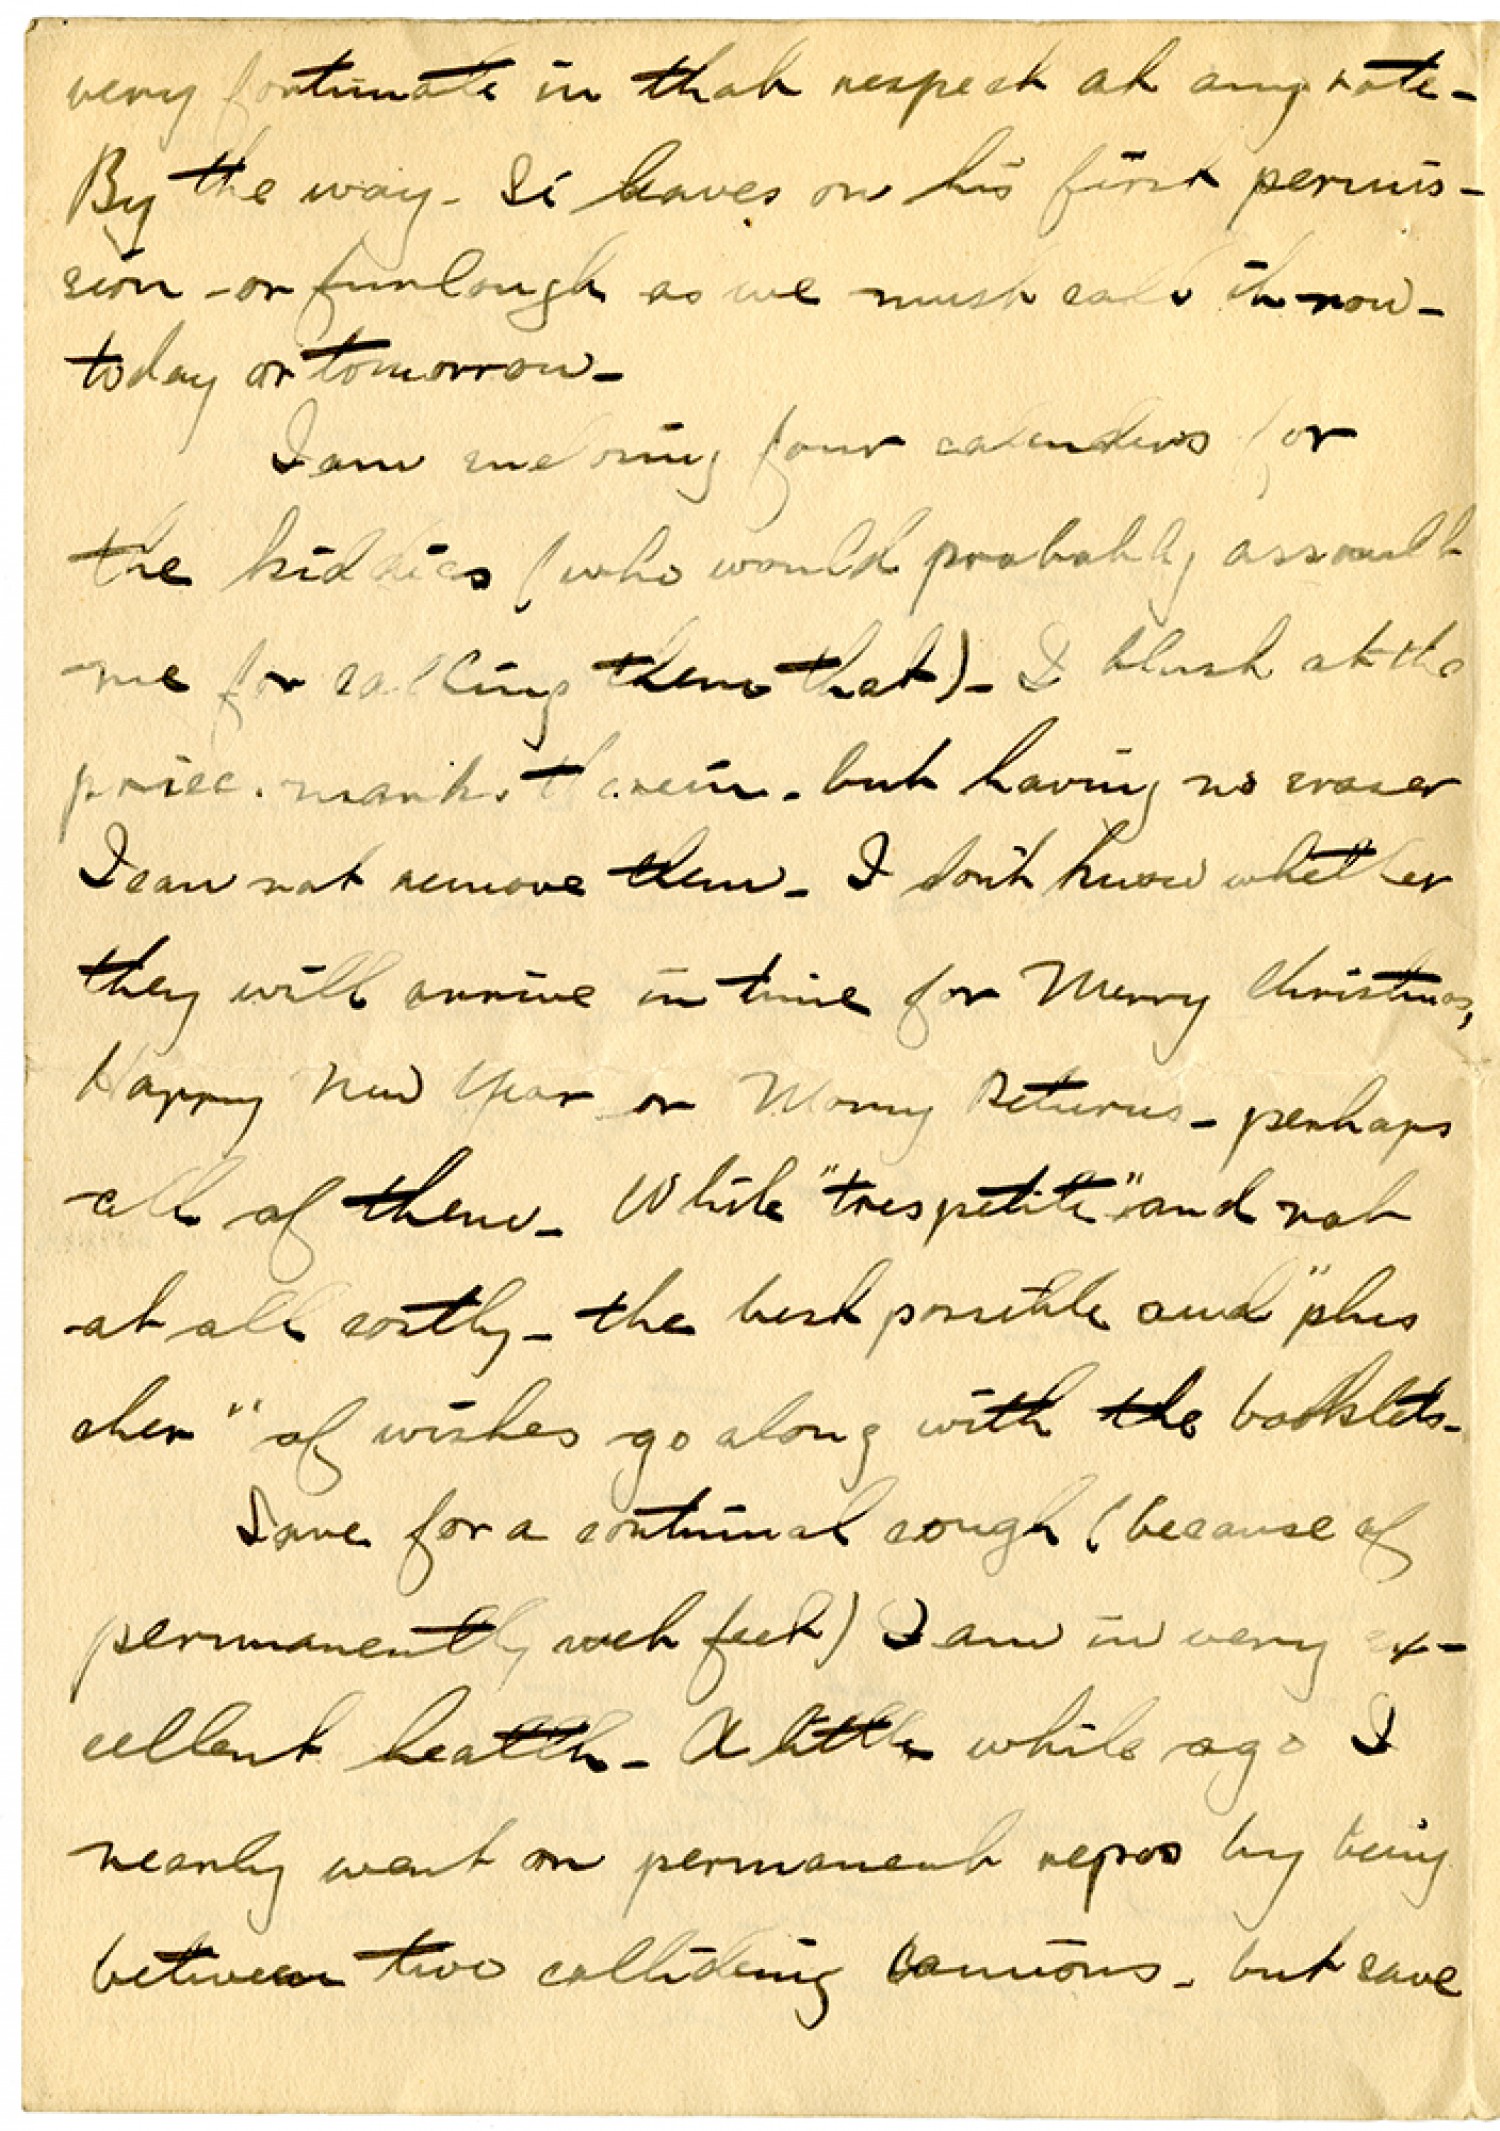 very fortunate in that respect at any rate -
By the way - Si leaves on his first permis-
sion - or furlough as we must call it now -
today or tomorrow -
I am enclosing four calendars for
the kiddies (who would probably assault
me for calling them that) - I blush at the
price marks therein - but having no eraser
I can not remove them - I don't know whether
they will arrive in time for Merry Christmas,
Happy New Year or Many Returns - perhaps
all of them - While "tres petite" and not
at all costly - the best possible and "plus
cher" of wishes go along with the booklets -
Save for a continual cough (because of
permanently wet feet) I am in very ex-
cellent health - A little while ago I
nearly went on permanent repos by being
between two colliding camions - but save